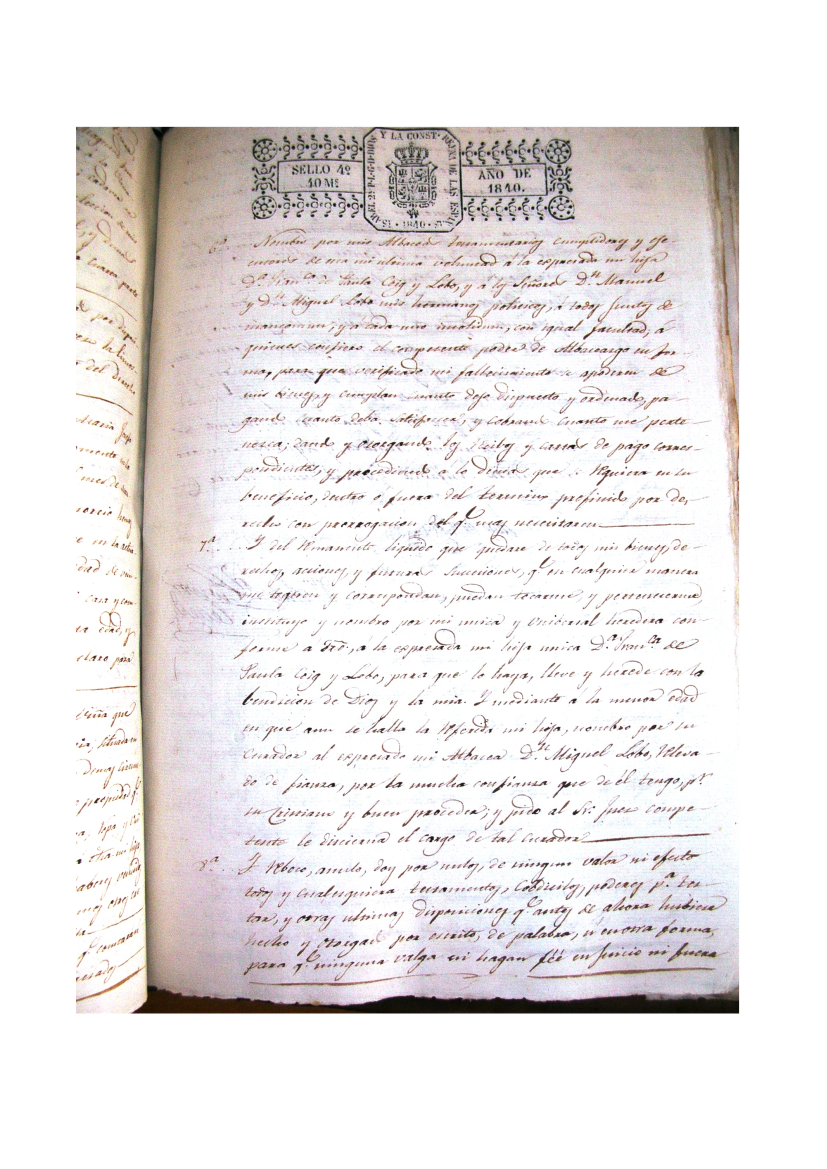 SELLO 4º
40 Mˢ
Y LA CONST.
AÑO DE
1840.
· 1840 ·
6ª Nombro por mis Albaceas testamentarios cumplidores y eje-
cutores de esta mi ultima voluntad á la espresada mi hija
Dª Franᶜᵃ de Paula Coig y Lobo, y á los Señores Dⁿ Manuel
y Dⁿ Miguel Lobo mis hermanos politicos, á todos juntos de
mancomun, y á cada uno insolidum, con igual facultad, á
quienes confiero el competente poder de Albaceazgo en for-
ma, para que verificado mi fallecimiento se apoderen de
mis bienes, y cumplan cuanto dejo dispuesto y ordenado, pa-
gando cuanto deba, satisfaccer, y cobrando cuanto me perte-
nesca; dando y otorgando los recibos y cartas de pago corres-
pondientes, y procediendo á lo demás que se requiera en su
beneficio, dentro ó fuera del termino prefinido por de-
recho con prorrogacion del qᵉ mas necesitaren
7ª Y del remanente liquido que quedare de todos mis bienes, de-
rechos, acciones, y futuras succiones, qᵉ en cualquier manera
me toquen y correspondan, puedan tocarme, y pertenecerme,
instituyo y nombro por mi unica y universal heredera con-
forme a dro., á la espresada mi hija unica Dª Franᶜᵃ de
Paula Coig y Lobo, para que lo haya, lleve y herede con la
bendicion de Dios y la mia. Y mediante a la menor edad
en que aun se halla la referida mi hija, nombro por su
curador al espresado mi Albacea Dⁿ Miguel Lobo, releva-
do de fianza, por la mucha confianza que de él tengo, pʳ
su Cristiano y buen proceder; y pido al Sr. Juez compe-
tente le discierna el cargo de tal curador
8ª Y reboco, anulo, doy por nulos, de ningun valor ni efecto
todos y cualesquiera testamentos, Cobdicilos, poderes pª tes-
tar, y otras ultimas disposiciones qᵉ antes de ahora hubiese
hecho y otorgado por escrito, de palabra, ú en otra forma,
para qᵉ ninguna valga ni hagan feé en juicio ni fuera